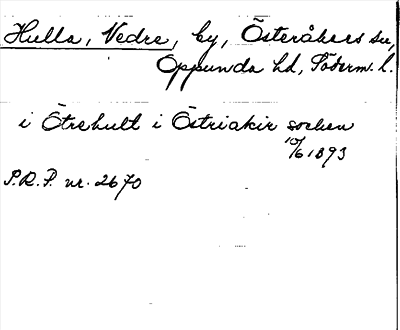 Hulla, Vedre, by, Österåkers sn,
Oppunda hd, Söderm. l.
i Ötrehult i Östriakir sochen
10/6 1893
P.R.P. nr. 2670